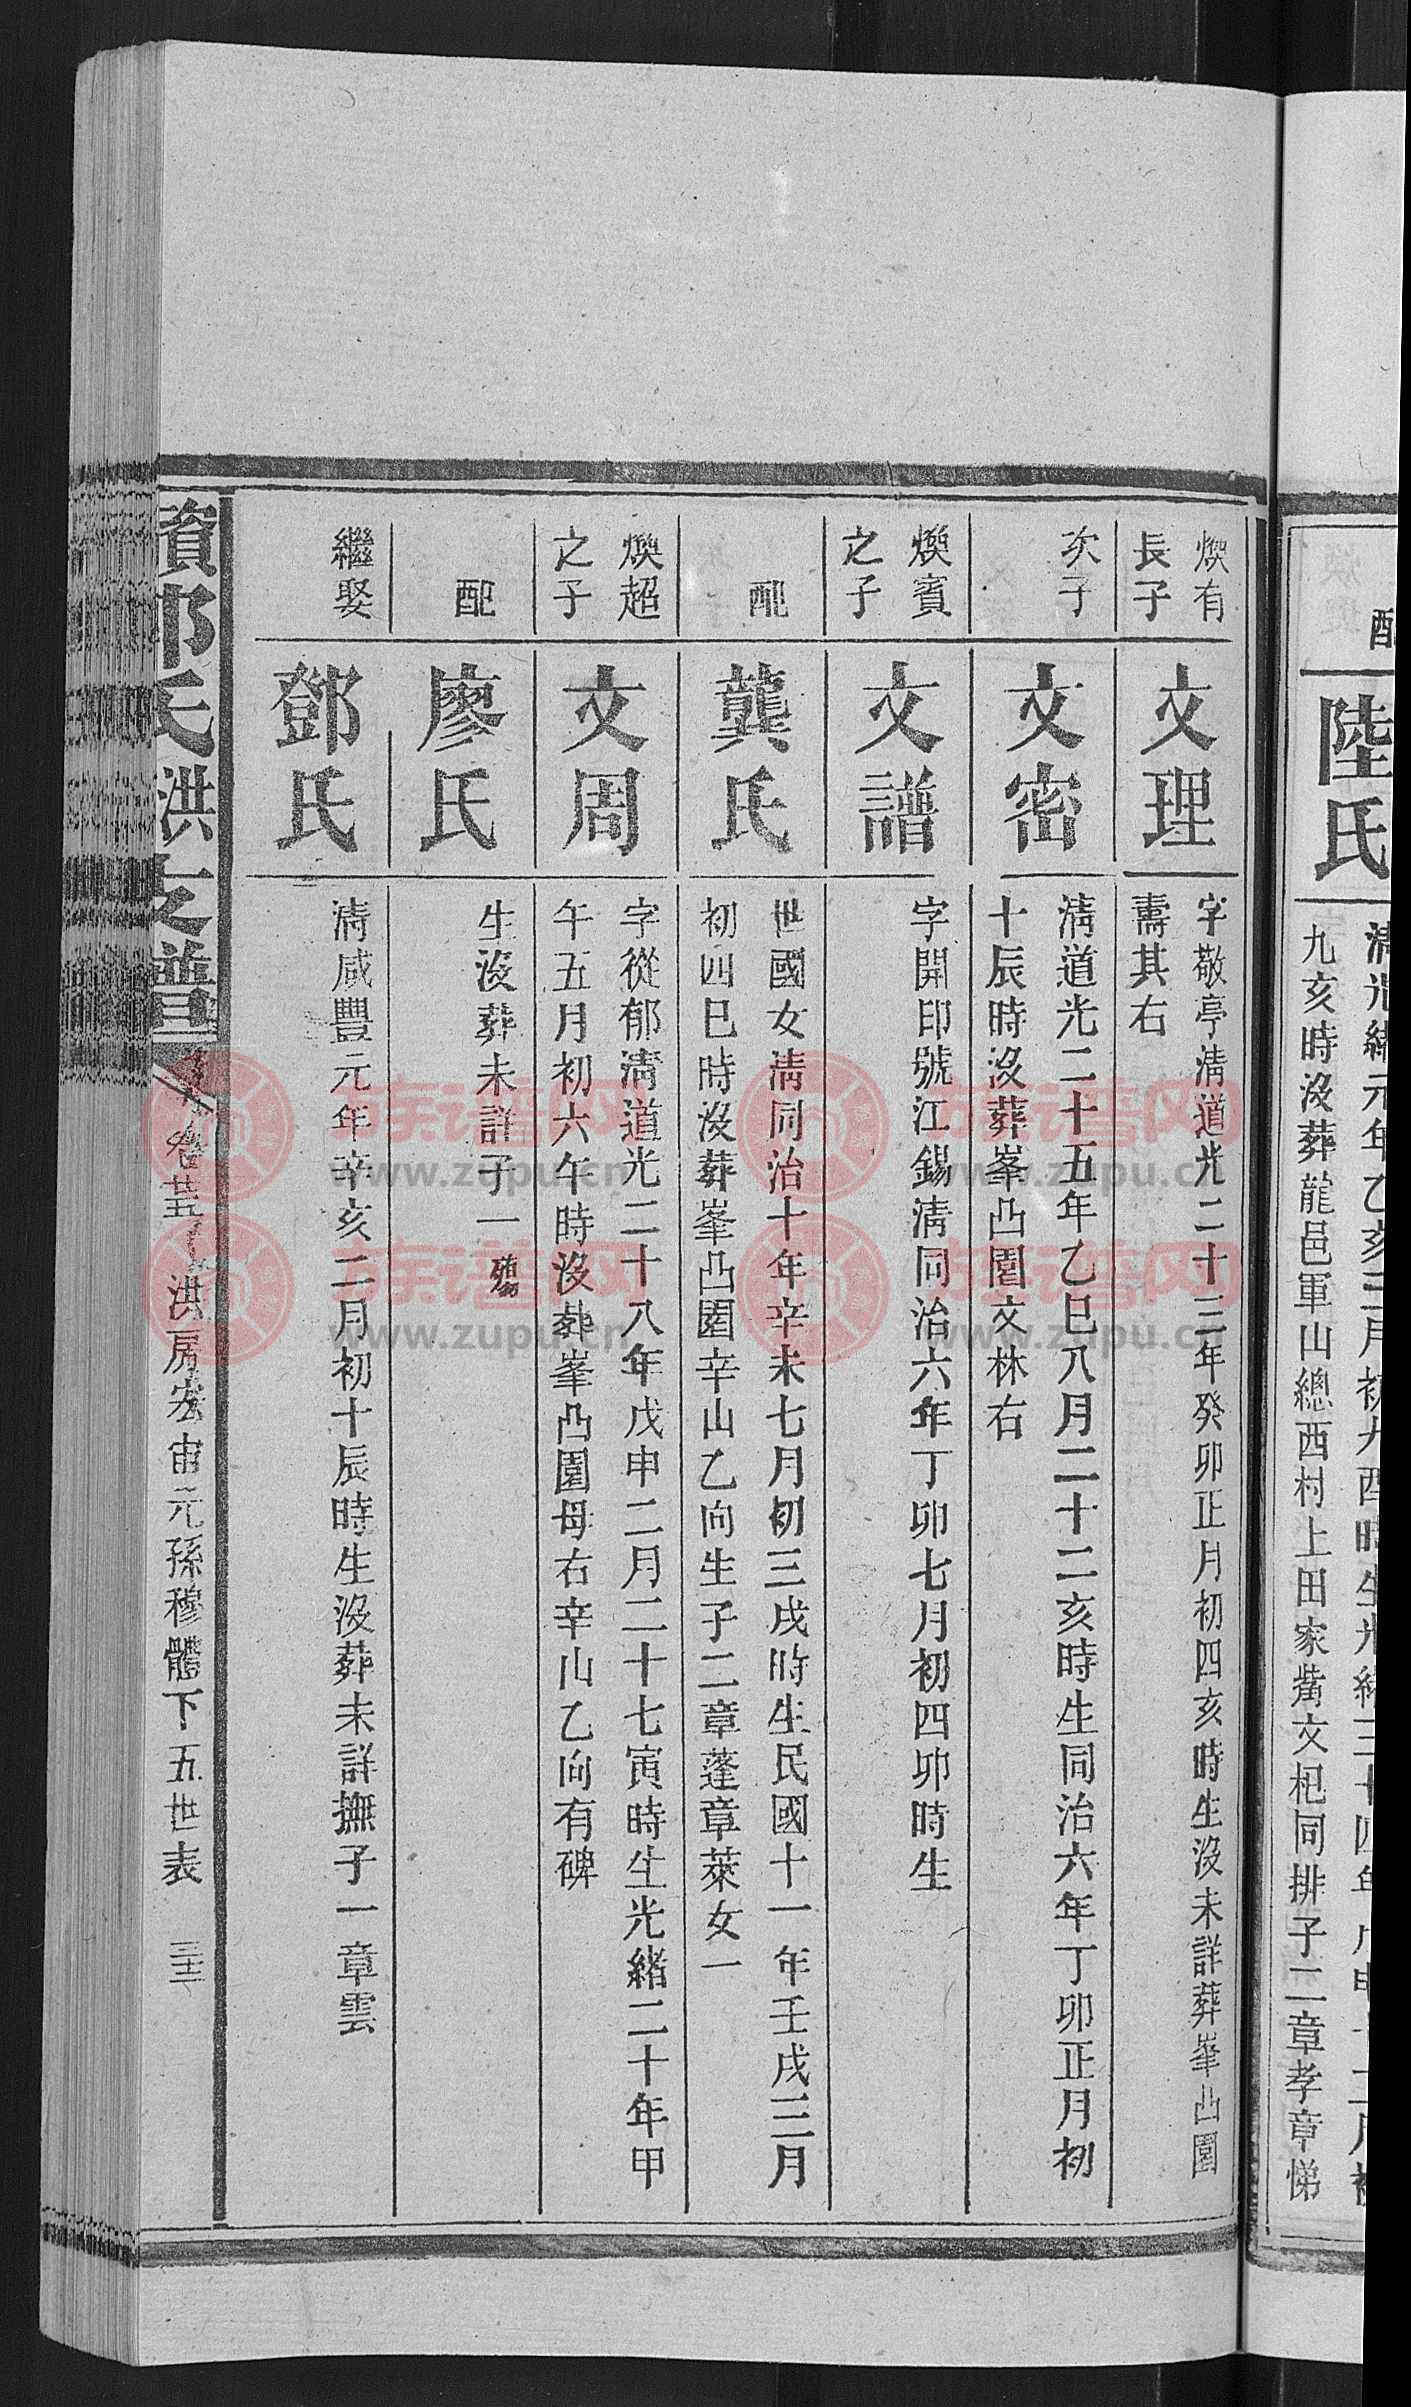 配
陸氏
九亥時沒葬龍邑軍山總西村上田家觜文杞同排子二章孝章悌
煥有
長子
文理
字敬亭清道光二十三年癸卯正月初四亥時生沒未詳葬峯凸園
壽其右
次子
文密
清道光二十五年乙巳八月二十二亥時生同治六年丁卯正月初
十辰時沒葬峯凸園文林右
煥賓
之子
文譜
字開印號江錫清同治六年丁卯七月初四卯時生
配
龔氏
世國女清同治十年辛未七月初三戌時生民國十一年壬戌三月
初四巳時沒葬峯凸園辛山乙向生子二章蓬章萊女一
煥超
之子
文周
字從郁清道光二十八年戊申二月二十七寅時生光緒二十年甲
午五月初六午時沒葬峯凸園母右辛山乙向有碑
配
廖氏
生沒葬未詳子一殤
繼娶
鄧氏
清咸豐元年辛亥二月初十辰時生沒葬未詳撫子一章雲
氏洪支譜
卷廿五
洪房宏宙元孫穆體下五世表
三十二
族谱网
www.zupu.cn
族谱网
www.zupu.cn
族谱网
www.zupu.cn
族谱网
www.zupu.cn